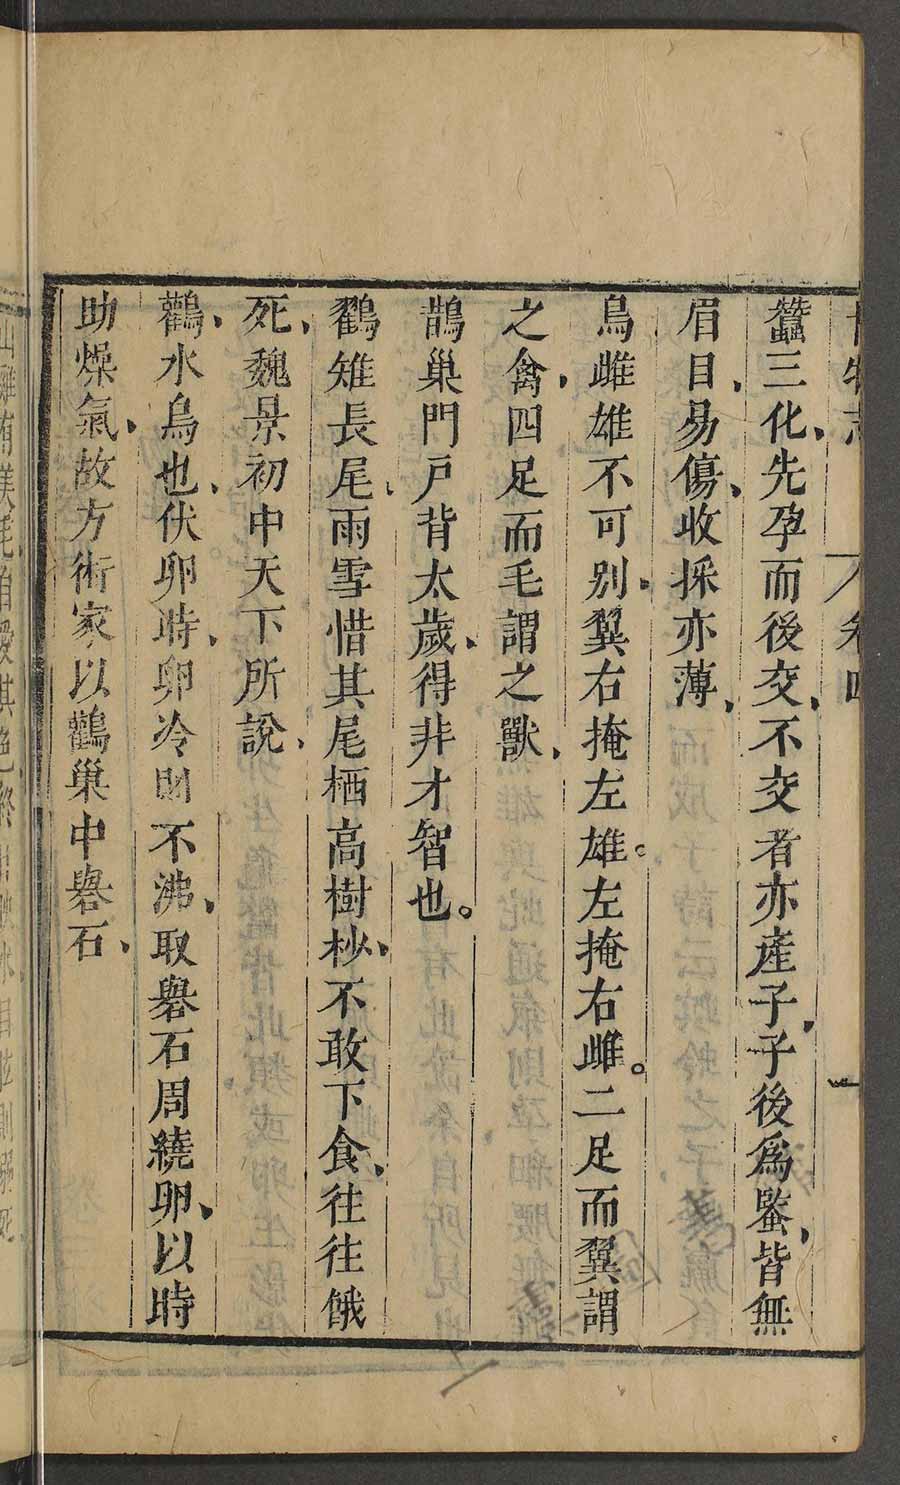 蠶三化、先孕而後交、不交者亦產子、子後爲蟁、皆無
眉目、易傷、收採亦薄、
鳥雌雄不可别、翼右掩左雄。左掩右雌。二足而翼謂
之禽、四足而毛謂之獸、
鵲巢門戸背太歲、得非才智也。
鸐雉長尾、雨雪惜其尾栖高樹杪、不敢下食、往往餓
死、魏景初中天下所說、
鸛、水鳥也、伏卵時、卵冷則不沸、取礜石周繞卵、以時
助燥氣、故方術家以鸛巢中礜石、